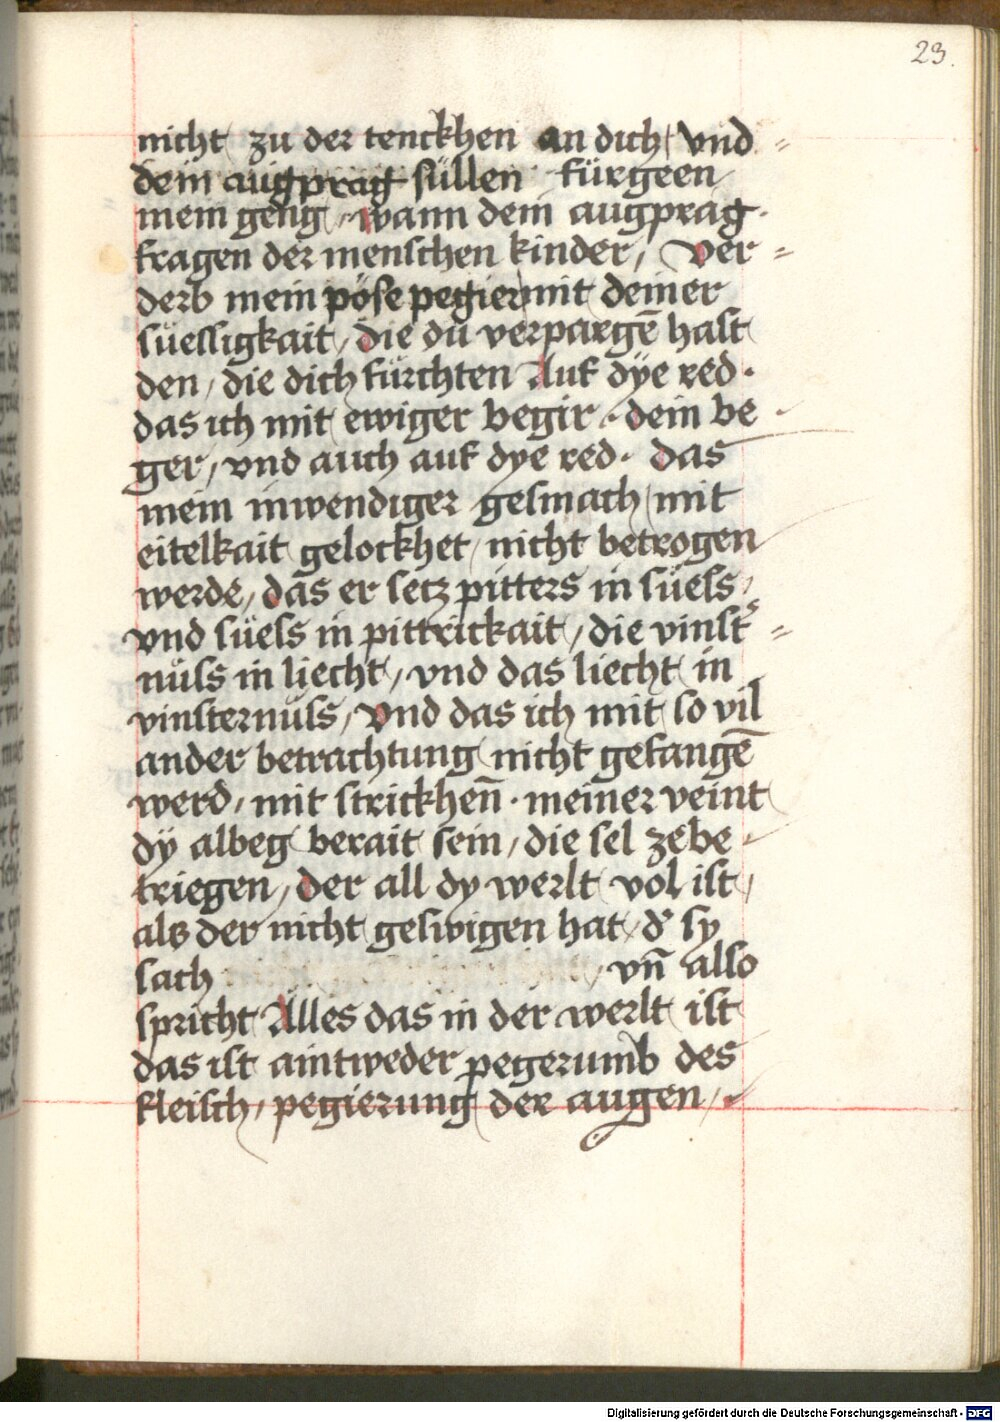 23.
nicht zu der tenckhen an dich / vnd =
dein augprag süllen fürgeen
mein geng / wann dein augprag.
fragen der menschen kinder / Ver =
derb mein pöse pegier mit deiner
süessigkait / die du verpargē hast
den / die dich fürchten Auf dÿe red.
das ich mit ewiger begir. dein be
ger / vnd auch auf dye red. das
mein inwendiger gesmach / mit
eitelkait gelockhet / nicht betrogen
werde / das er setz pitters in süess /
vnd süess in pittrickait / die vinst =
nüss in liecht / vnd das liecht in
vinsternüss / vnd das ich mit so vil
ander betrachtung nicht gefangē
werd / mit strickhen̄. meiner veint
dÿ albeg berait sein / die sel zebe
triegen / der all dy werlt vol ist /
als der nicht geswigen hat / d' sy
sach / vn̄ also
spricht Alles das in der werlt ist
das ist aintweder pegerumb des
fleisch / pegierung der augen /
Digitalisierung gefördert durch die Deutsche Forschungsgemeinschaft - DFG